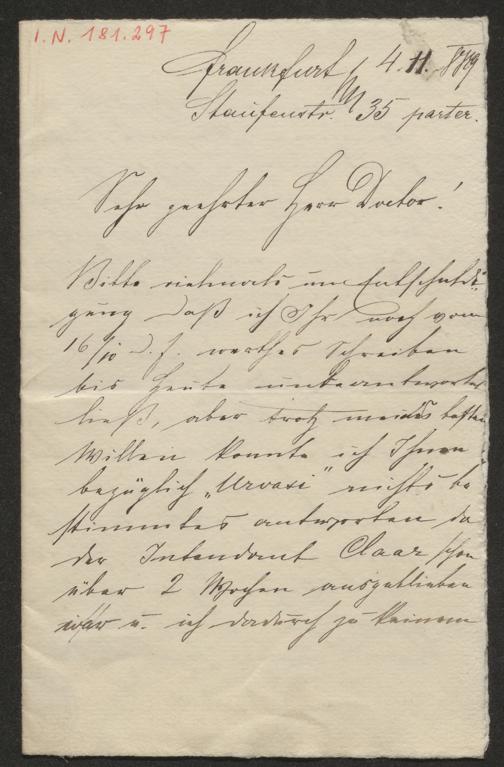 I.N. 181.297
Frankfurt /M 4. 11. 1889
Staufenstr. 35 parter.
Sehr geehrter Herr Doctor!
Bitte vielmals um Entschuldi-
gung daß ich Ihr noch vom
16/10 d. J. werthes Schreiben
bis heute unbeantwortet
ließ, aber trotz meines besten
Willen konnte ich Ihnen
bezüglich „Urvasi" nichts be
stimmtes antworten da
der Intendant Claar schon
über 2 Wochen ausgeblieben
war u. ich dadurch zu keinem